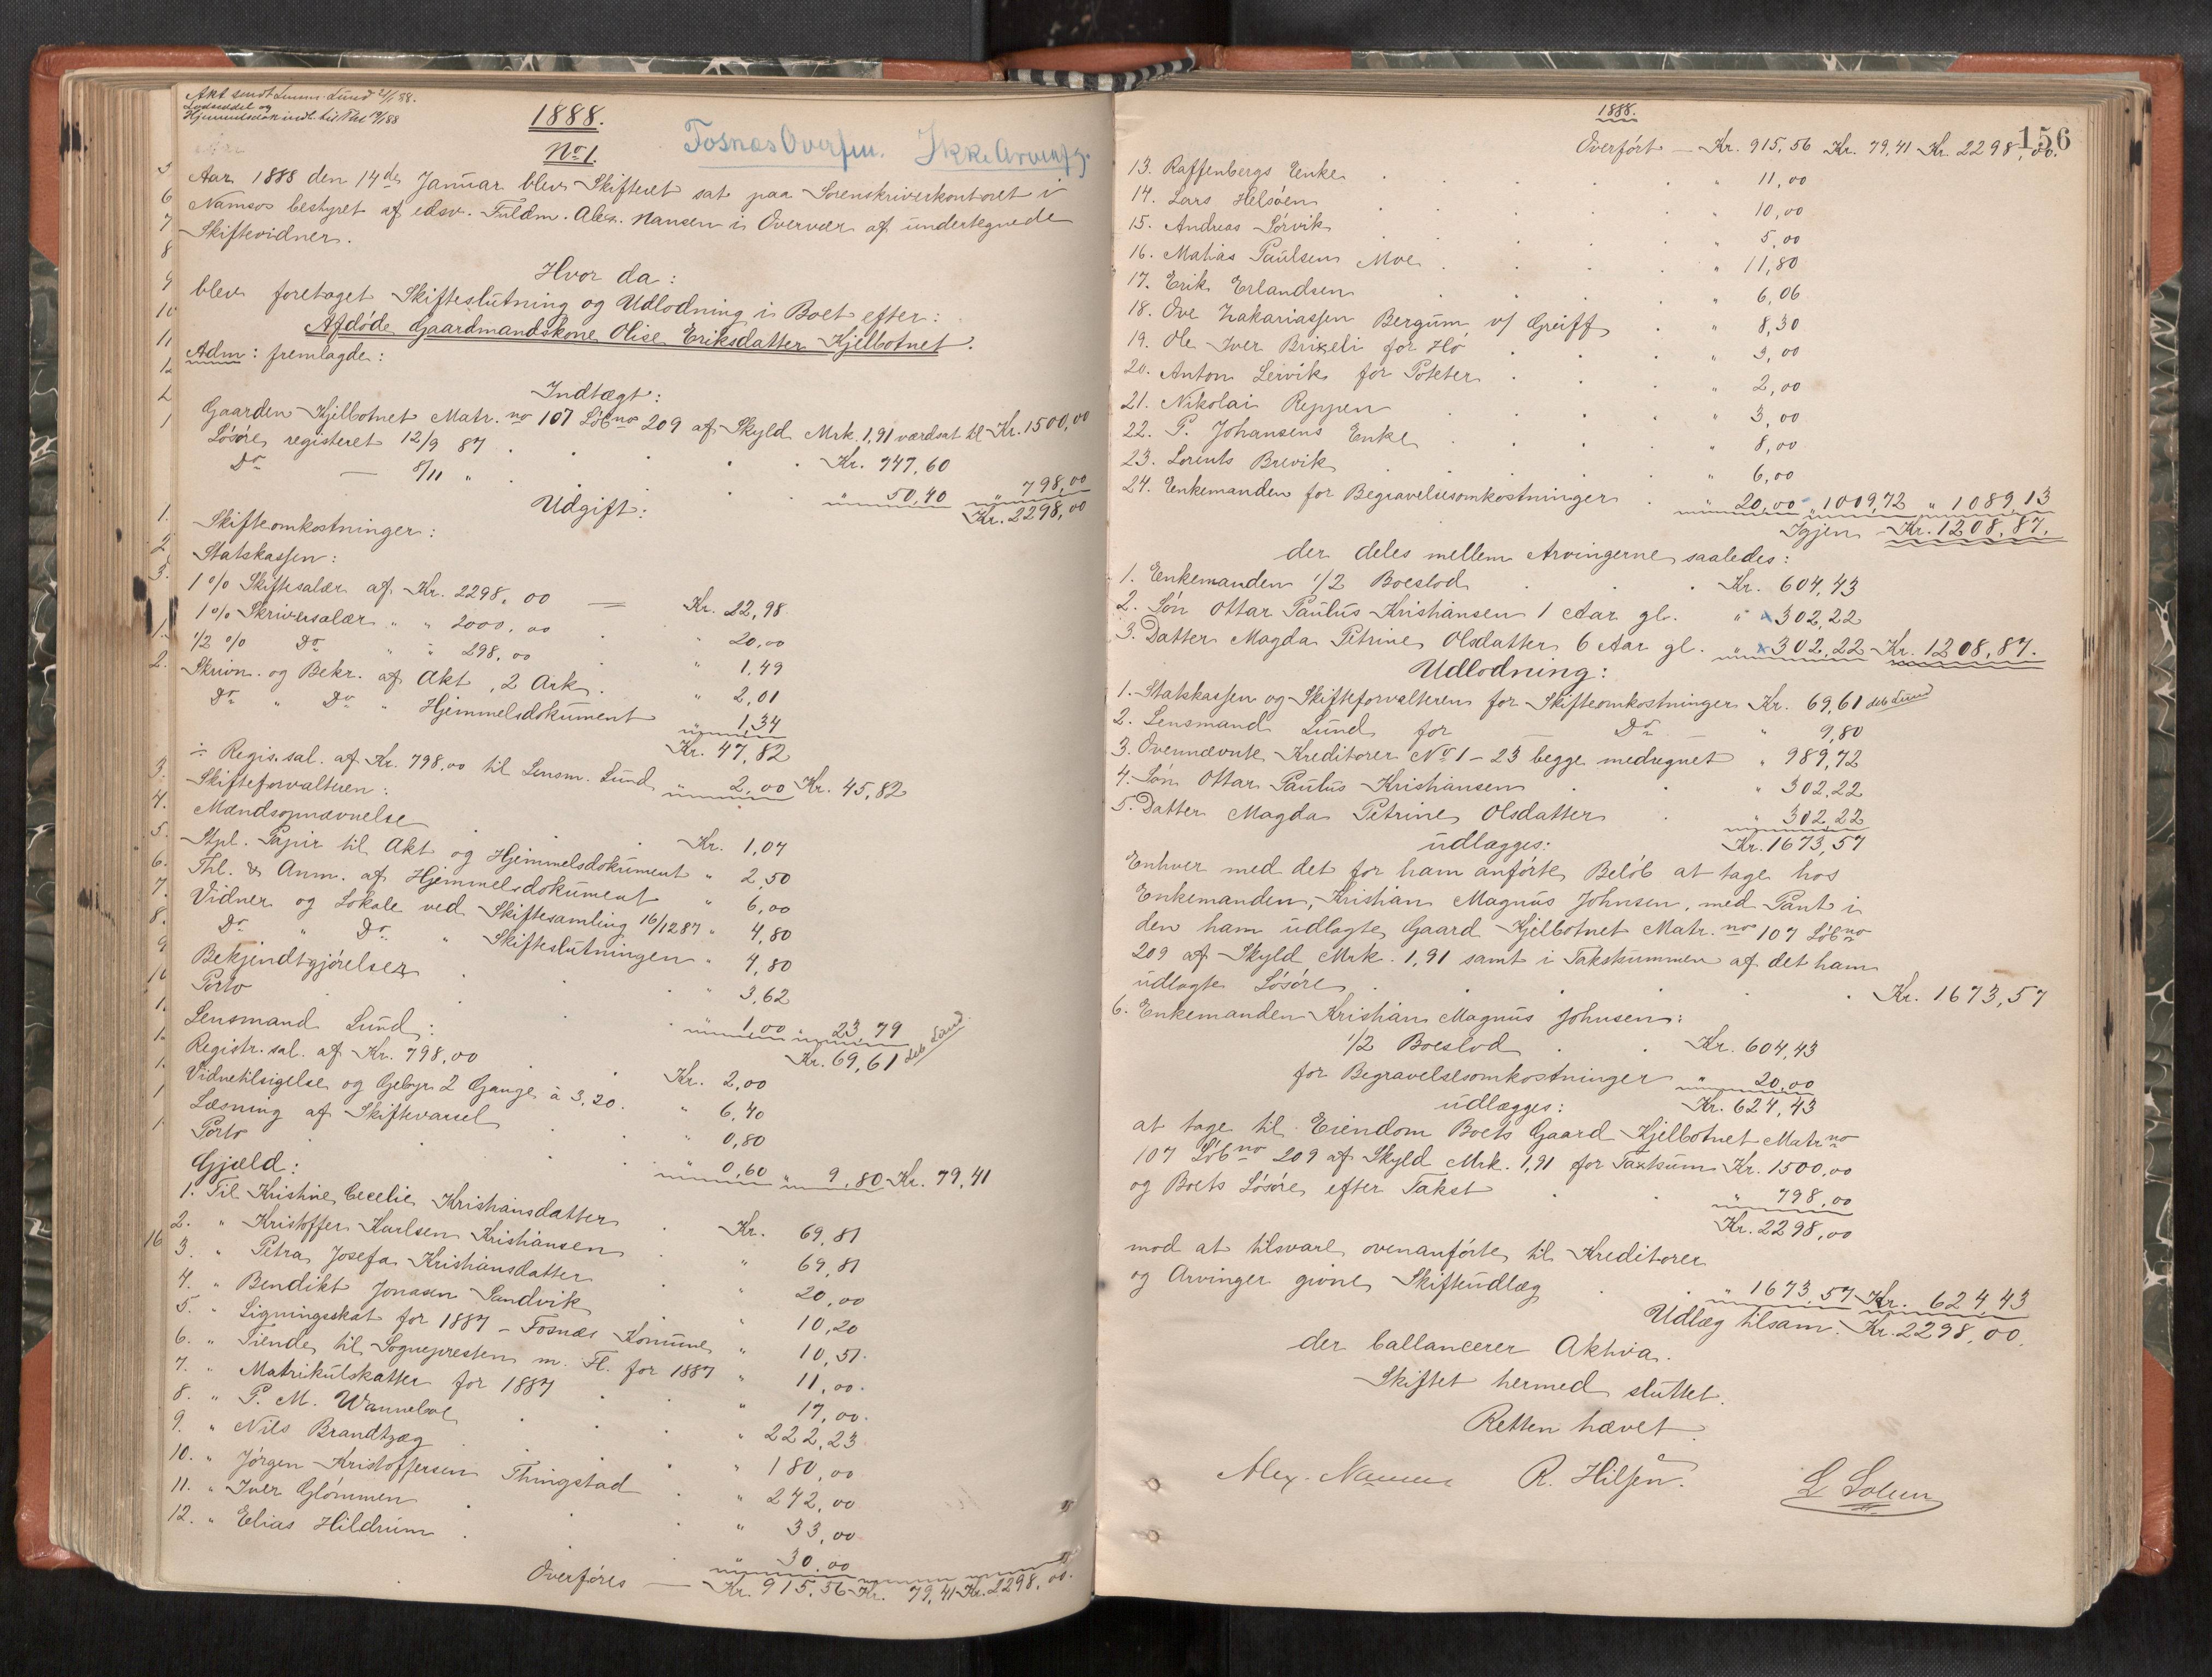 Akt sendt Lensm. Lund 21/1 88.
Lodseddel og
Hjemmelsdok. indt. til Thl. 19/1 88
1888.
No 1.
Fosnæs Overfm. Ikke Arveafg.
Aar 1888 den 14de Januar blev Skifteret sat paa Sorenskriverkontoret i
Namsos bestyret af edsv. Fuldm. Alex. Nansen i Overvær af undertegnede
Skiftevidner.
Hvor da:
blev foretaget Skifteslutning og Udlodning i Boet efter:
Afdøde Gaardmandskone Olise Eriksdatter Kjelbotnet.
Adm: fremlagde:
Indtægt:
Gaarden Kjelbotnet Matr. no 107 Løbno 209 af Skyld Mrk. 1,91 værdsat til Kr. 1500,00
Løsøre registeret 12/9 87 . . . . Kr. 747,60
Do — 8/11 " . . . " 50,40 " 798,00
Kr. 2298,00
Udgift:
Skifteomkostninger:
Statskassen:
1 % Skiftesalær af Kr. 2298,00 — Kr. 22,98
1 % Skriversalær " " 2000,00 . " 20,00
1/2 % Do " " 298,00 . " 1,49
Skrivn. og Bekr. af Akt, 2 Ark. " 2,01
Do " Do " Hjemmelsdokument " 1,34
Kr. 47,82
÷ Regis. sal. af Kr. 798,00 til Lensm. Lund " 2,00 Kr. 45,82
Skifteforvalteren:
Mændsopnævnelse . . Kr. 1,07
Stpl. Papir til Akt og Hjemmelsdokument " 2,50
Thl. & Anm. af Hjemmelsdokument " 6,00
Vidner og Lokale ved Skiftesamling 16/12 87 " 4,80
Do " Do " Skifteslutningen " 4,80
Bekjendtgjørelser . . " 3,62
Porto . . " 1,00 " 23,79
Kr. 69,61 deb Lund
Lensmand Lund:
Registr. sal. af Kr. 798,00 . Kr. 2,00
Vidnetilsigelse og Gebyr 2 Gange à 3,20. " 6,40
Læsning af Skiftevarsel . . " 0,80
Porto . . . " 0,60 " 9,80 Kr. 79,41
Gjæld:
1. Til Kristine Cecelie Kristiansdatter . Kr. 69,81
2. " Kristoffer Karlsen Kristiansen . " 69,81
3. " Petra Josefa Kristiansdatter . " 20,00
4. " Bendikt Jonasen Sandvik . " 10,20
5. " Ligningsskat for 1887 – Fosnæs Komune " 10,51.
6. " Tiende til Sognepresten m. Fl. for 1887 " 11,00.
7. " Matrikulskatter for 1887 . " 17,00.
8. " P. M. Wanneboe . . " 222,23
9. " Nils Brandtzæg . . " 180,00
10. " Jørgen Kristoffersen Thingstad . " 242,00
11. " Iver Glømmen . . " 33,00
12. " Elias Hildrum . . " 30,00
Overføres — Kr. 915,56 Kr. 79,41 Kr. 2298,00.
1888.
156
Overført — Kr. 915,56 Kr. 79,41 Kr. 2298,00.
13. Raffenbergs Enke . . . " 11,00
14. Lars Helsøen . . . " 10,00
15. Andreas Sørvik . . . " 5,00
16. Matias Paulsen Moe . . . " 11,80
17. Erik Erlandsen . . . " 6,06
18. Ove Zakariassen Bergum v/ Greiff . " 8,30
19. Ole Iver Brixeli for Hø . . " 3,00
20. Anton Lervik for Poteter . . " 2,00
21. Nikolai Reppen . . . " 3,00
22. P. Johansens Enke . . . " 8,00
23. Lorents Brevik . . . " 6,00
24. Enkemanden for Begravelsesomkostninger . " 20,00 " 1009,72 " 1089,13
Igjen Kr. 1208,87.
der deles mellem Arvingerne saaledes:
1. Enkemanden 1/2 Boeslod . . Kr. 604,43
2. Søn Ottar Paulus Kristiansen 1 Aar gl. " 302,22
3. Datter Magda Petrine Olsdatter 6 Aar gl. " 302,22 Kr. 1208,87.
Udlodning:
1. Statskassen og Skifteforvalteren for Skifteomkostninger Kr. 69,61 deb Lund
2. Lensmand Lund for Do " 9,80
3. Ovennævnte Kreditorer No 1 – 23 begge medregnet " 989,72
4. Søn Ottar Paulus Kristiansen . . " 302,22
5. Datter Magda Petrine Olsdatter . " 302,22
udlægges: Kr. 1673,57
Enhver med det for ham anførte Beløb at tage hos
Enkemanden, Kristian Magnus Johnsen, med Pant i
den ham udlagte Gaard Kjelbotnet Matr. no 107 Løbno
209 af Skyld Mrk. 1,91 samt i Takstsummen af det ham
udlagte Løsøre . . . . Kr. 1673,57
6. Enkemanden Kristian Magnus Johnsen:
1/2 Boeslod . . Kr. 604,43
for Begravelsesomkostninger " 20,00
udlægges: Kr. 624,43
at tage til Eiendom Boets Gaard Kjelbotnet Matr no
107 Løbno 209 af Skyld Mrk. 1,91 for Taxtsum Kr. 1500,00
og Boets Løsøre efter Takst . . " 798,00
Kr. 2298,00
mod at tilsvare ovenanførte til Kreditorer
og Arvinger givne Skifteudlæg . . " 1673,57 Kr. 624,43
Udlæg tilsam. Kr. 2298,00.
der ballancerer Aktiva.
Skiftet hermed sluttet.
Retten hævet.
Alex. Nansen R. Hilsen. L Solem